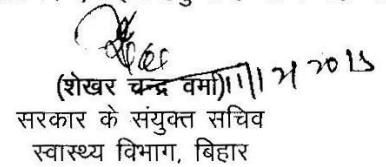 (शेखर चन्द्र वर्मा)
सरकार के संयुक्त सचिव
स्वास्थ्य विभाग, बिहार